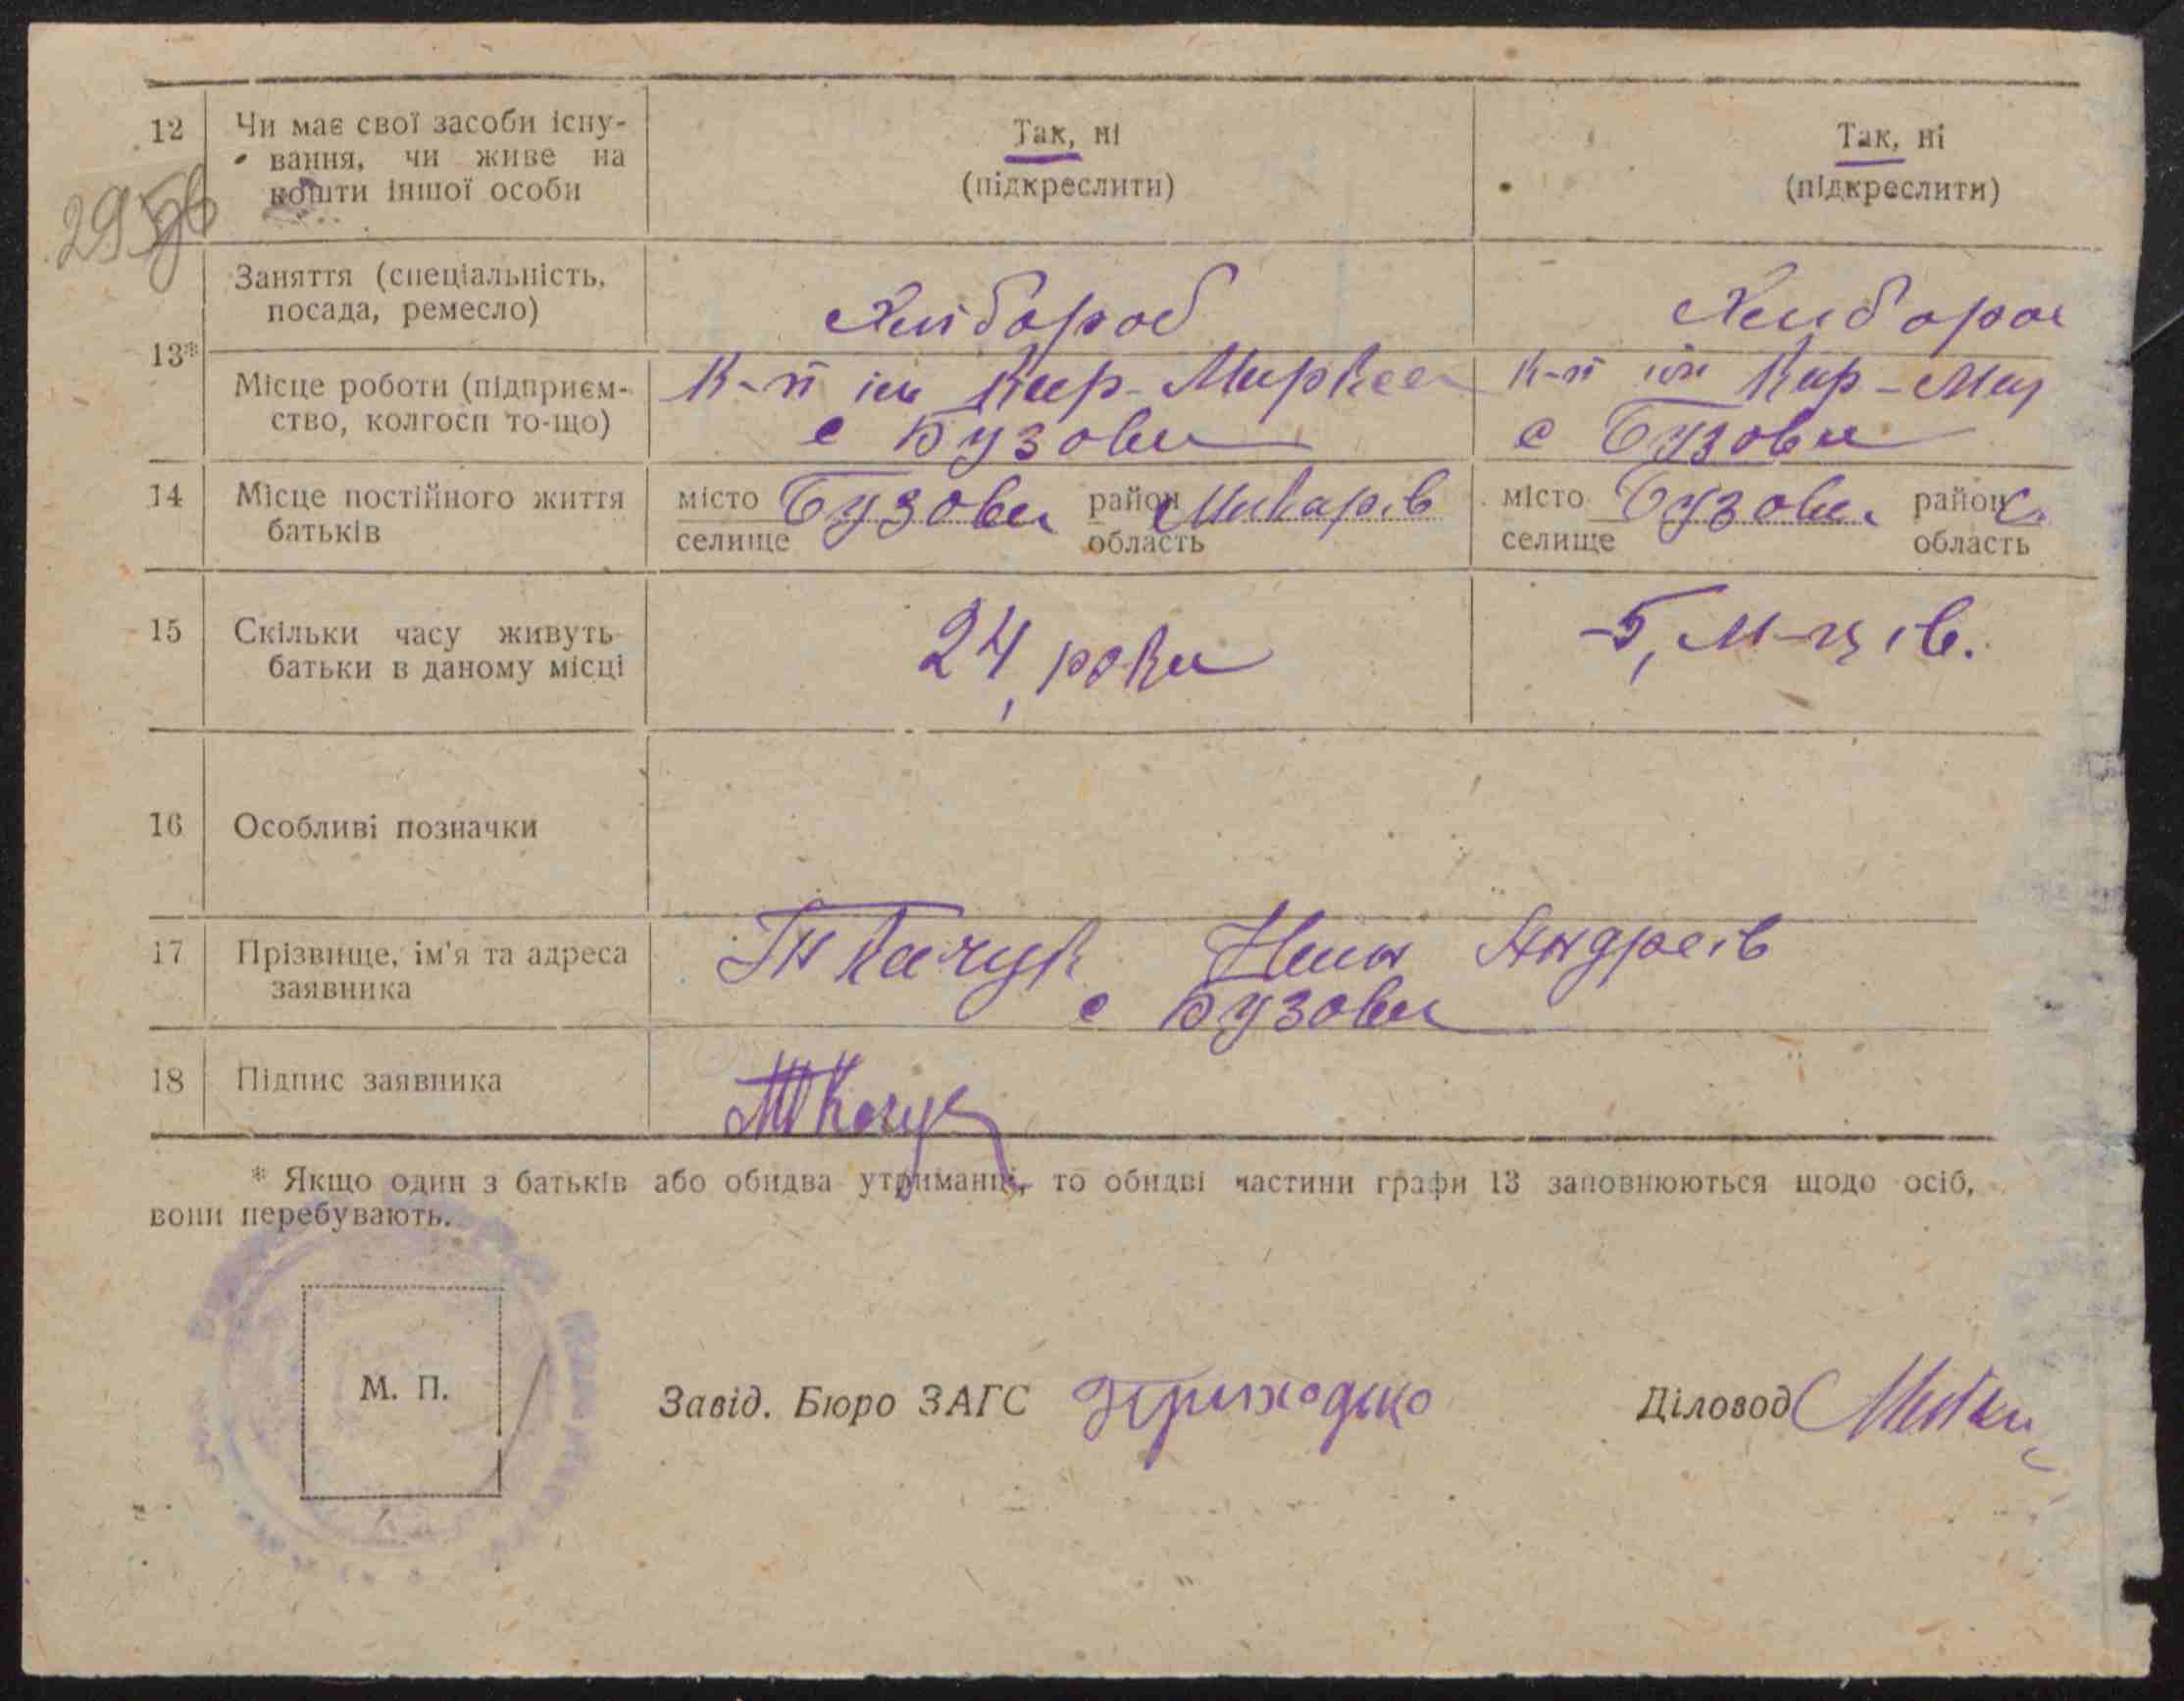 12 Чи має свої засоби існу- Так, ні Так, ні
вання, чи живе на
кошти іншої особи (підкреслити) (підкреслити)
295
Заняття (спеціальність,
посада, ремесло) Хлібороб Хлібороб
13*
Місце роботи (підприєм- К-п ім Кар-Маркса К-п ім Кар-Мар
ство, колгосп то-що) с Бузови с Бузови
14 Місце постійного життя місто Бузови район Макарів місто Бузови район
батьків селище область селище область
15 Скільки часу живуть 24, роки 5, м-ців.
батьки в даному місці
16 Особливі позначки
17 Прізвище, ім'я та адреса Ткачук Андреїв
заявника с Бузови
18 Підпис заявника Ткачук
* Якщо один з батьків або обидва утриманці, то обидві частини графи 13 заповнюються щодо осіб,
вони перебувають.
М. П. Завід. Бюро ЗАГС Приходько Діловод